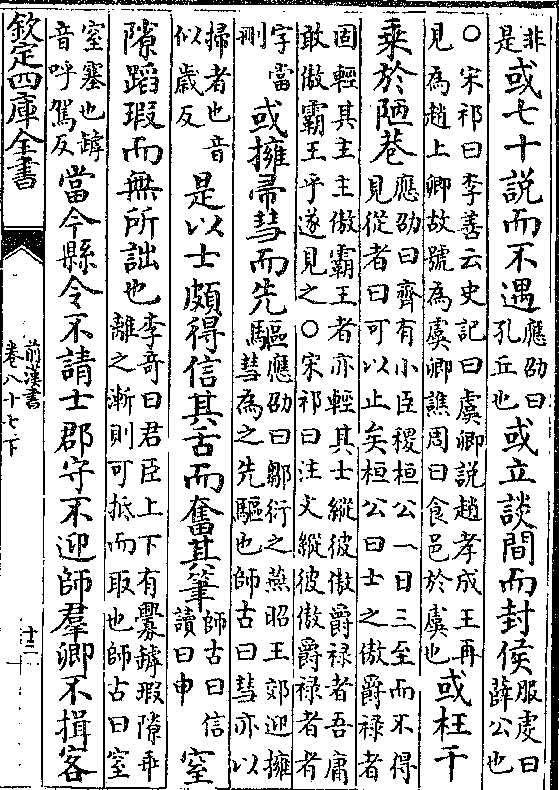 非是或七十說而不遇應劭曰孔丘也或立談間而封侯服虔曰薛公也
○宋祁曰李善云史記曰虞卿說趙孝成王再見為趙上卿故號為虞卿譙周曰食邑於虞也或枉千
乘於陋巷應劭曰齊有小臣稷桓公一日三至而不得見從者曰可以止矣桓公曰士之傲爵祿者
固輕其主主傲霸王者亦輕其士縱彼傲爵祿者吾庸敢傲霸王乎遂見之○宋祁曰注文縱彼傲爵祿者者
字當刪或擁帚彗而先驅應劭曰鄒衍之燕昭王郊迎擁彗為之先驅也師古曰彗亦以
掃者也音似歲反是以士頗得信其舌而奮其筆師古曰信讀曰申窒
隙蹈瑕而無所詘也李奇曰君臣上下有釁罅瑕隙乖離之漸則可抵而取也師古曰窒
窒塞也罅音呼駕反當今縣令不請士郡守不迎師羣卿不揖客
欽定四庫全書
前漢書
卷八十七下
十三